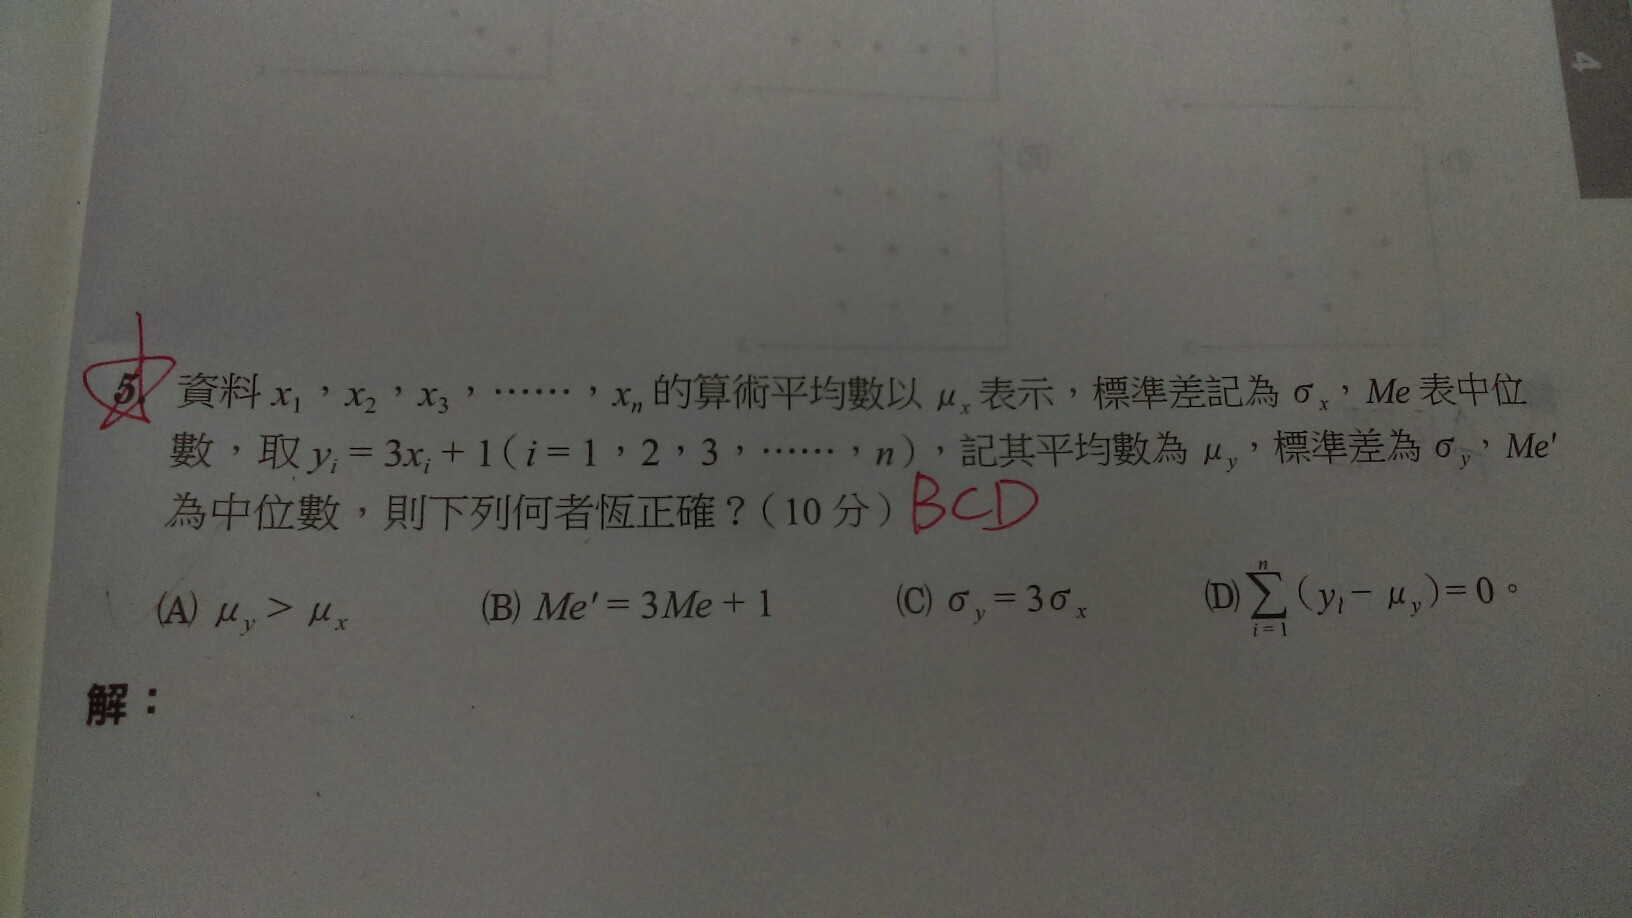 4
5. 資料 x₁，x₂，x₃，……，xₙ 的算術平均數以 μₓ 表示，標準差記為 σₓ，Me 表中位
數，取 yᵢ = 3xᵢ + 1（i = 1，2，3，……，n），記其平均數為 μ_y，標準差為 σ_y，Me'
為中位數，則下列何者恆正確？（10 分） BCD
(A) μ_y > μₓ (B) Me' = 3Me + 1 (C) σ_y = 3σₓ (D) ∑ᵢ₌₁ⁿ (yᵢ − μ_y) = 0。
解：